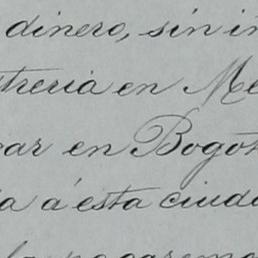 dinero, sin in
treria en Me
ar en Bogot
a á esta ciuda